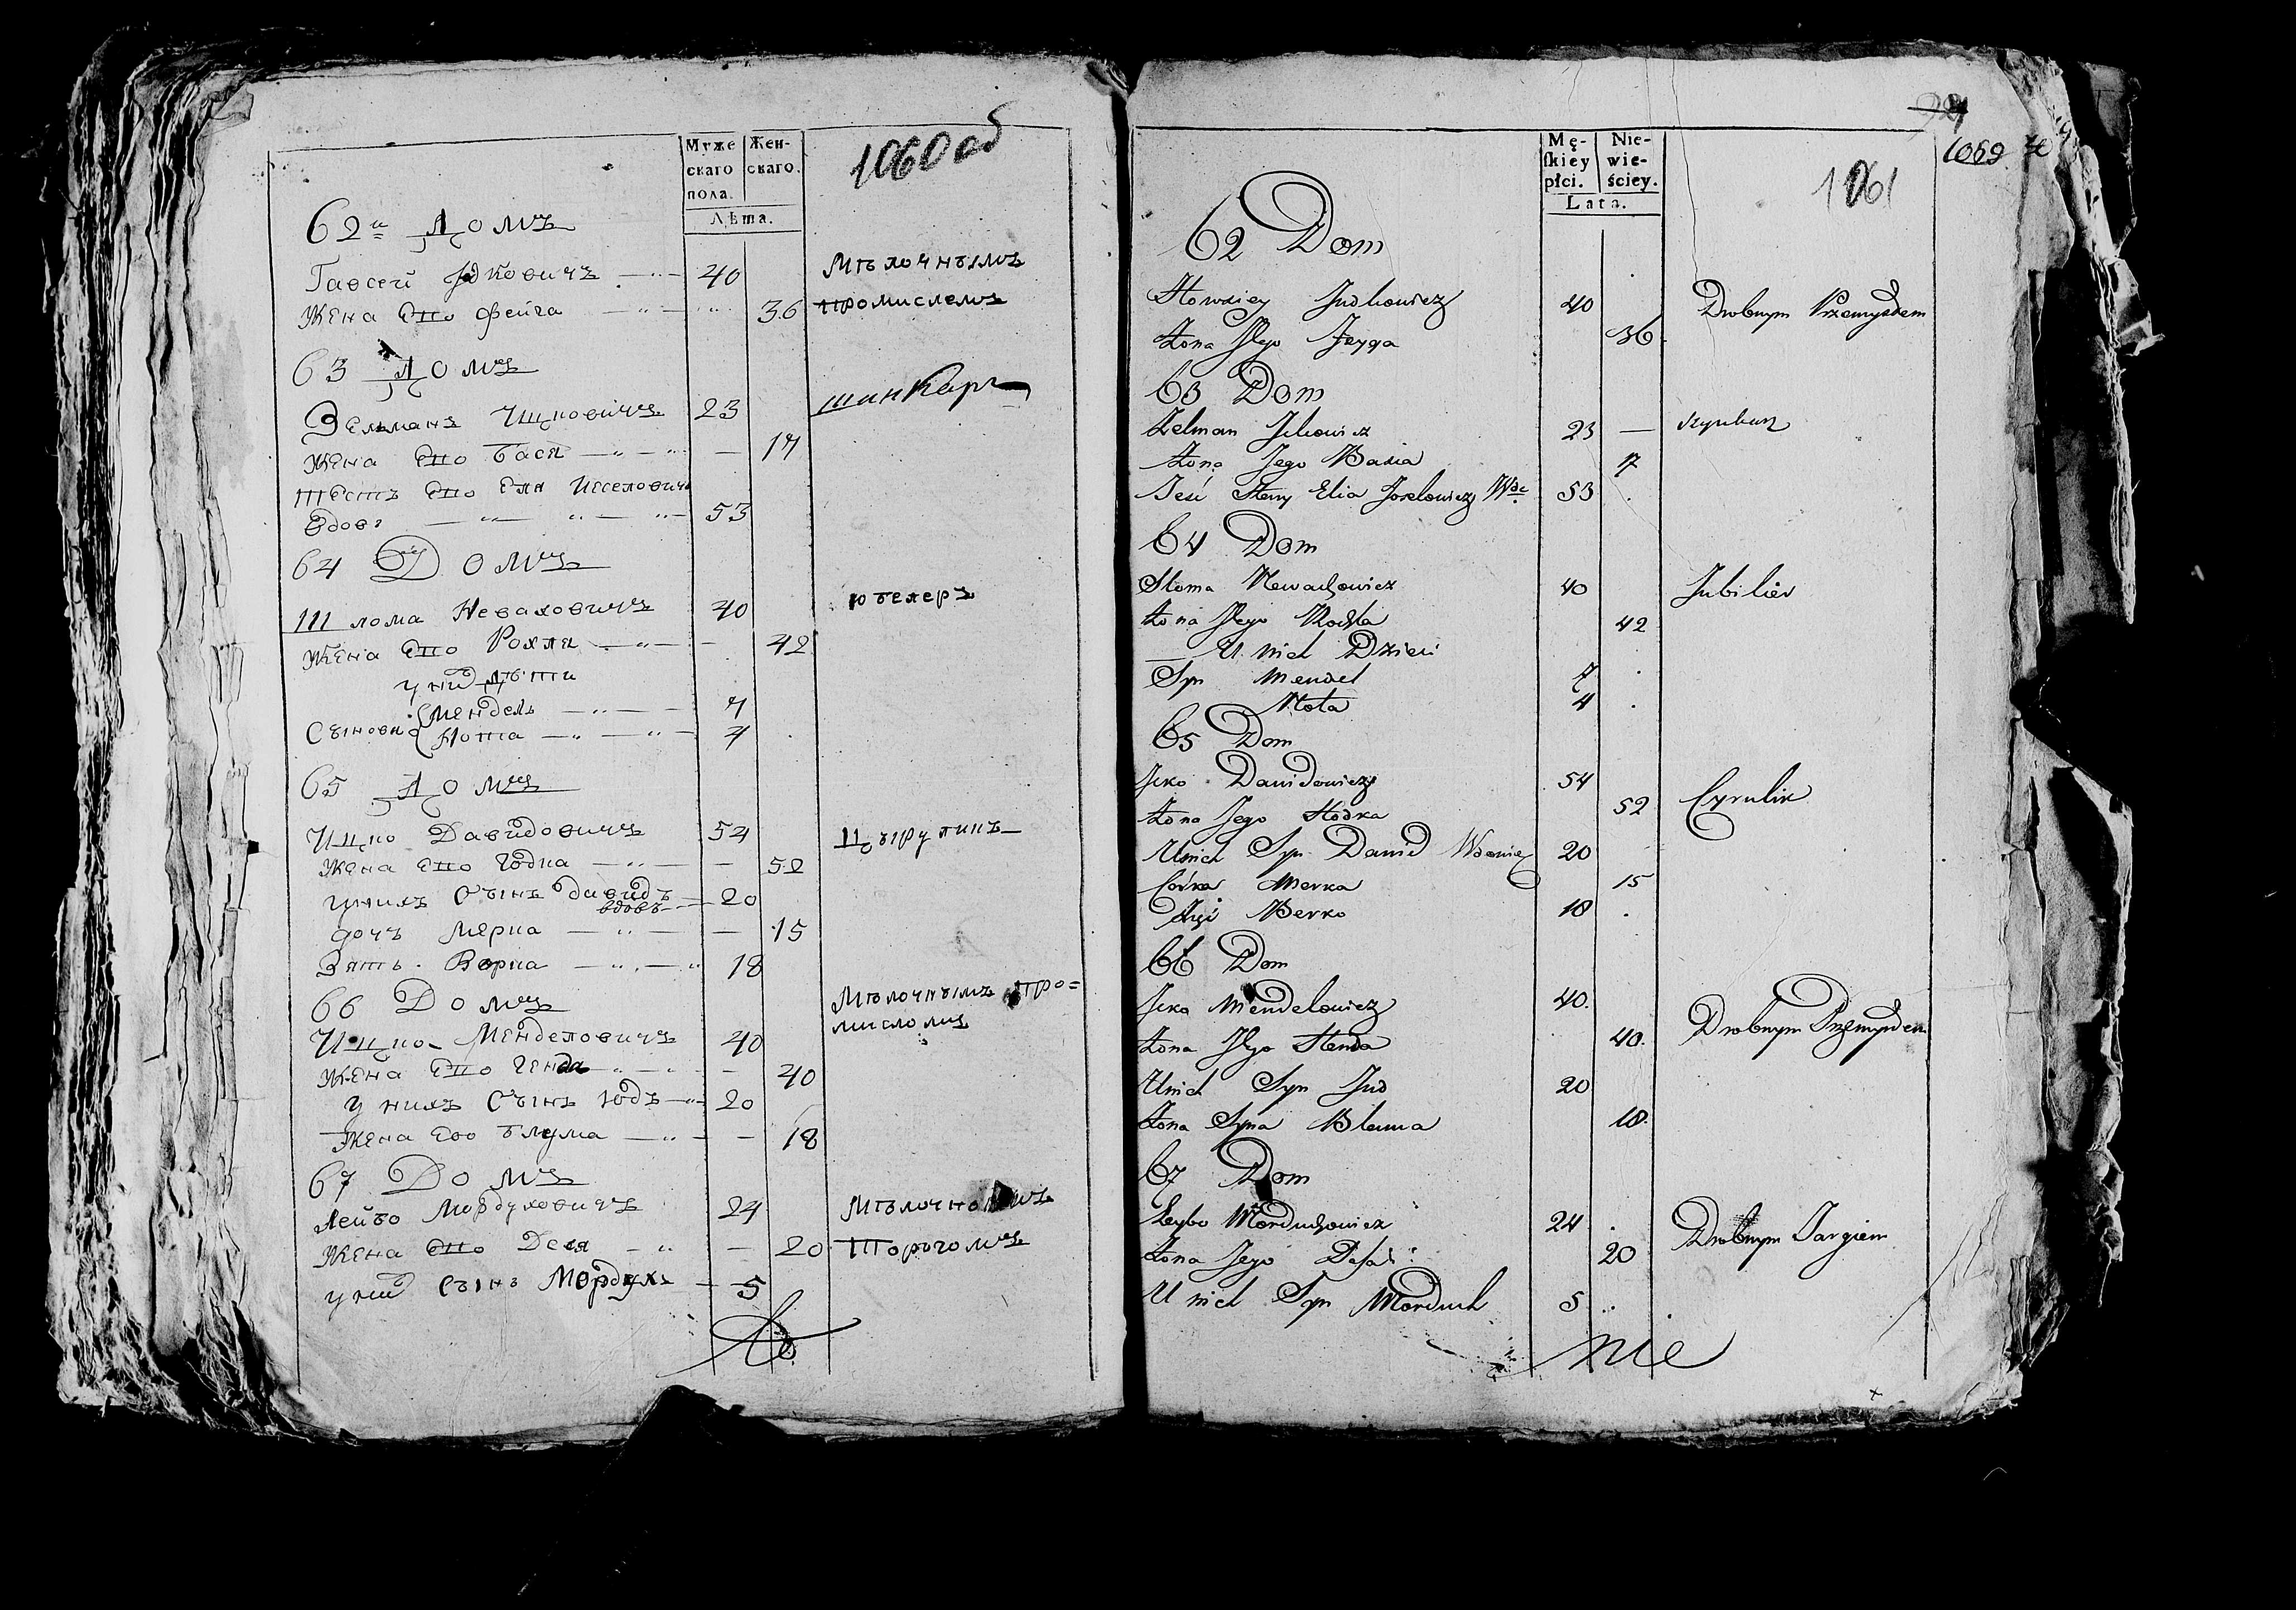 Муже Жен-
скаго скаго.
пола.
Лѣта.
1060 об
62й Домъ
Гавсей Юдковичъ 40 Мѣлочнымъ
Жена Его Фейга 36 промислемъ
63 Домъ
Зельманъ Ицковичъ 23 шинкаръ
Жена Его Бася 17
Тесть Его Еля Иселовичъ
Вдовъ 53
64 Домъ
Шлома Неваховичъ 40 ювелеръ
Жена Его Рохля 42
у них дѣти
Мендель 7
Сыновя Нота 4
65 Домъ
Ицко Давидовичъ 54 Цыруликъ
Жена Его Годка 52
у нихъ Сынъ Давидъ 20
вдовъ
дочъ Мерка 15
Зять Берка 18
66 Домъ Мѣлочнымъ про=
мисломъ
Ицко Менделовичъ 40
Жена Его Генда 40
у нихъ Сынъ Юдъ 20
Жена Его Блума 18
67 Домъ
Лейбо Мордуховичъ 24
Жена Его Деся 20 Торгомъ
у них Сынъ Мордухъ 5
1069
1061
Mę- Nie-
skiey wie-
płci. ściey.
Lata.
62 Dom
Howsiey Judkowicz 40 Drobnym Przemysłem
żona Jego Feyga 36
63 Dom
Zelman Ickowicz 23 — szynkarz
żona Jego Basia 17
Teść Stary Elia Joselowicz Wdc 53
64 Dom
Sloma Newachowicz 40 Jubilier
żona Jego Rochla 42
U nich Dzieci
Syn Mendel 7
Nota 4
65 Dom
Jcko Dawidowicz 54 Cyrulik
żona Jego Hodka 52
U nich Syn Dawid Wdowiec 20
Córka Merka 15
Zięć Berko 18
66 Dom
Jcko Mendelowicz 40 Drobnym Przemysłem
żona Jego Henda 40
U nich Syn Jud 20
żona Syna Bluma 18
67 Dom
Leybo Morduchowicz 24 Drobnym Targiem
żona Jego 20
U nich Syn Morduch 5
nie